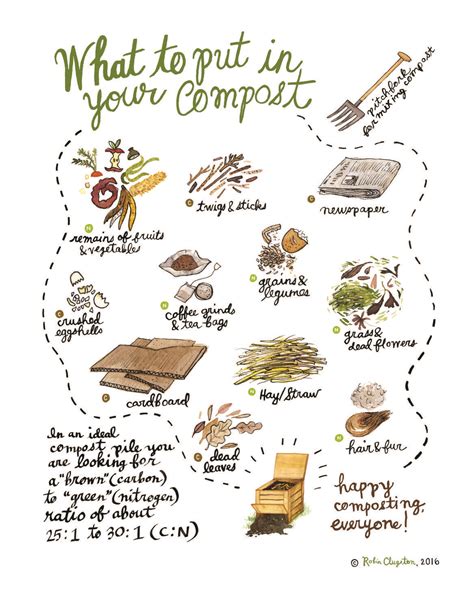 What to put in
your Compost
pitchfork
for mixing compost
N
remains of fruits
& vegetables
C
twigs & sticks
C
newspaper
C
crushed
eggshells
N
coffee grinds
& tea bags
N
grains &
legumes
N
grass &
dead flowers
C
cardboard
N
Hay/Straw
C
dead
leaves
N
hair & fur
In an ideal
compost pile you
are looking for
a "brown" (carbon)
to "green" (nitrogen)
ratio of about
25:1 to 30:1 (C:N)
happy
composting,
everyone!
© Robin Clugston, 2016